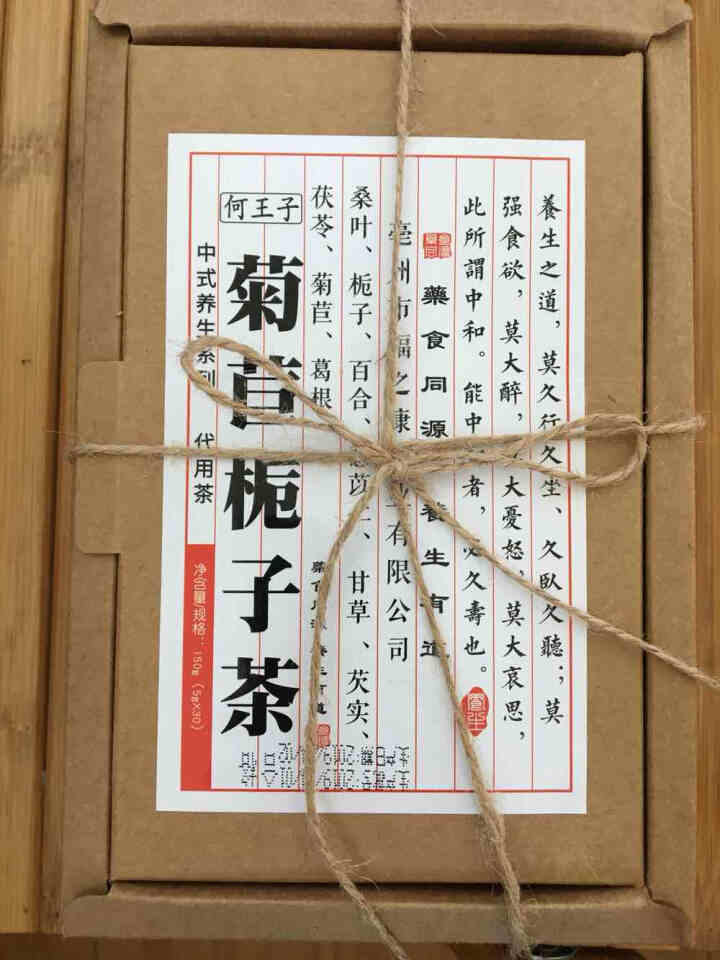 養生之道，莫久行久坐、久臥久聽；莫
强食欲，莫大醉，大憂怒，莫大哀思，
此所謂中和。能中者，必久壽也。
藥食同源 養生有道
亳州市福之康有限公司
桑叶、栀子、百合、苡、甘草、芡实、
茯苓、菊苣、葛根
藥食同源 養生有道
何王子
菊苣栀子茶
中式养生系列 代用茶
净含量/规格：150g（5g×30）